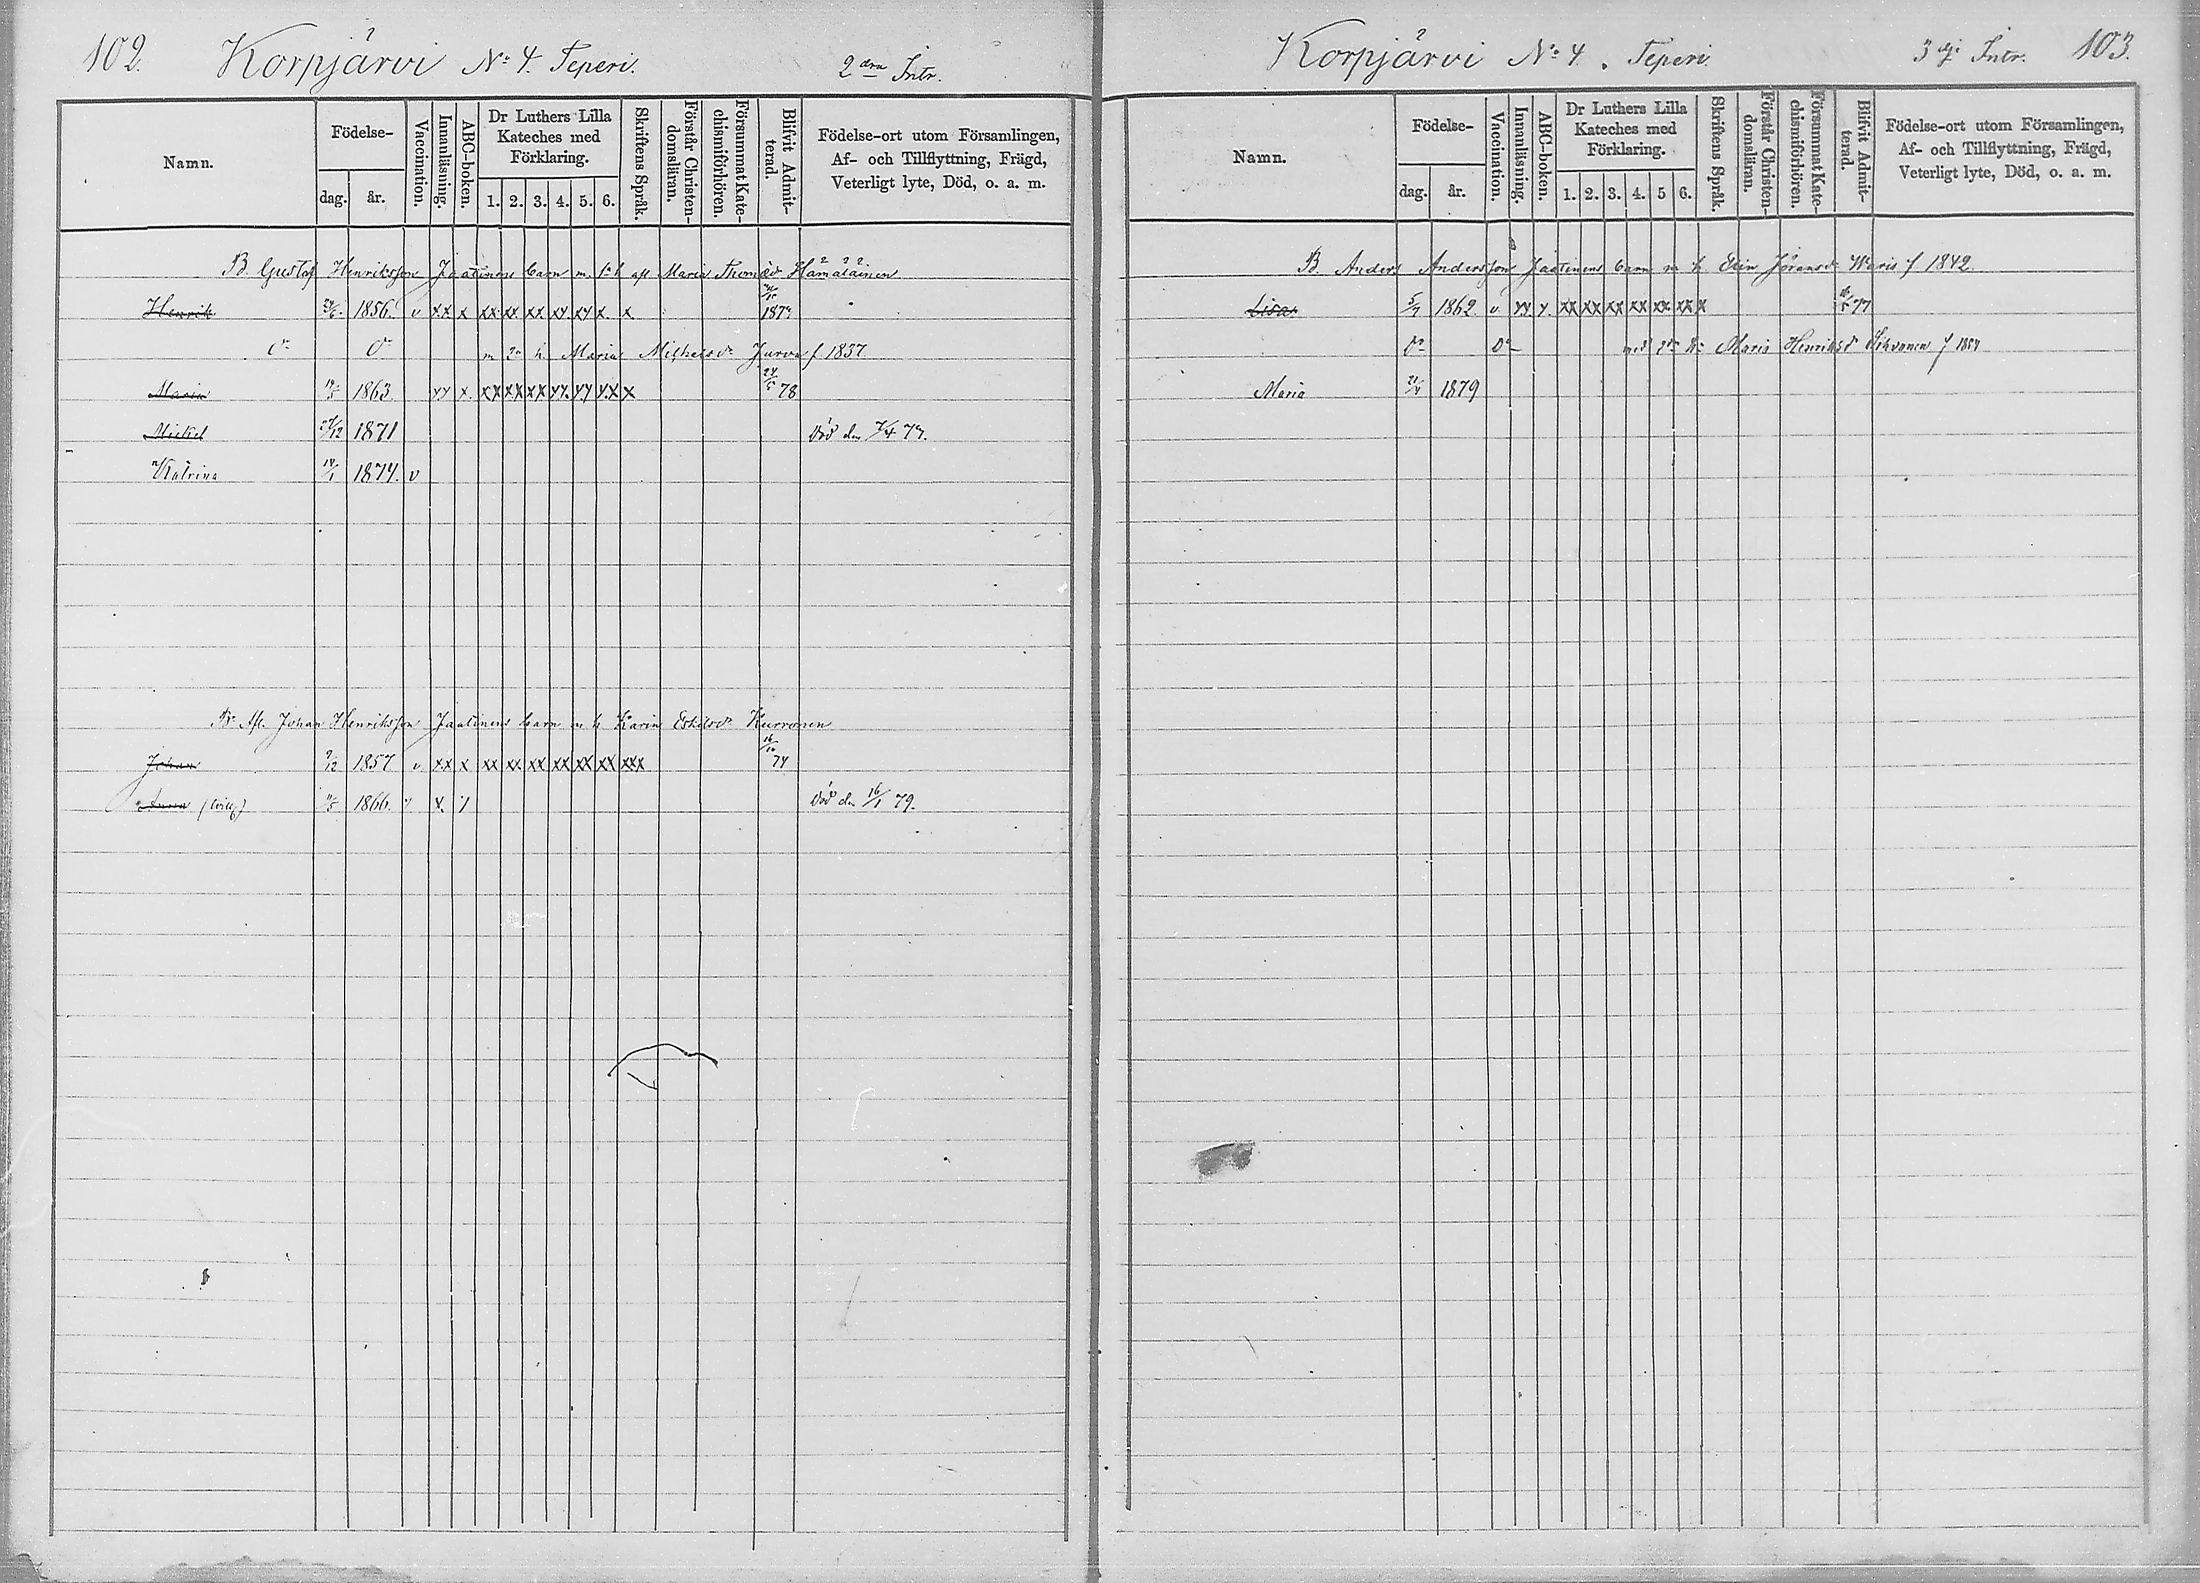 102. Korpjärvi No 4. Teperi. 2dra Intr.
Namn. Födelse- dag. år. Vaccination. Innanläsning. ABC-boken. Dr Luthers Lilla Kateches med Förklaring. 1. 2. 3. 4. 5. 6. Skriftens Språk. Förstår Christendomsläran. Försummat Katechismiförhören. Blifvit Admitterad. Födelse-ort utom Församlingen, Af- och Tillflyttning, Frägd, Veterligt lyte, Död, o. a. m.
B Gustaf Henriksson Jaatinens barn m. 1a h afl Maria Thomæd. Hämäläinen
Henrik 1856 v xx x xx xx xx xy xy x. x
Do Do m 2a h. Maria Michelsd. Jurva f 1837
Maria 1863. yy x. xx xx xx yy. yy y.x x 24/5 78
Mickel 1871 Död den 7/4 79.
Katrina 14/1 1874. v
B. Afl. Johan Henriksson Jaatinens barn m h Karin Eskelsd. Kurronen
Johan 9/12 1857 v. xx x xx xx xx xx xx xx xxx 16/10 74
Anna 1866. x. Död den 16/1 79.
Korpjärvi No 4. Teperi. 3dje Intr. 103.
Namn. Födelse- dag. år. Vaccination. Innanläsning. ABC-boken. Dr Luthers Lilla Kateches med Förklaring. 1. 2. 3. 4. 5 6. Skriftens Språk. Förstår Christendomsläran. Försummat Katechismiförhören. Blifvit Admitterad. Födelse-ort utom Församlingen, Af- och Tillflyttning, Frägd, Veterligt lyte, Död, o. a. m.
B. Anders Andersson Jaatinens barn m h Elin Jöransd. Waris f 1842
Lisa 1862. v yy y. xx xx xx xx xx xx x 77
Do Do med 2dra h: Maria Henriksd
Maria 21/4 1879